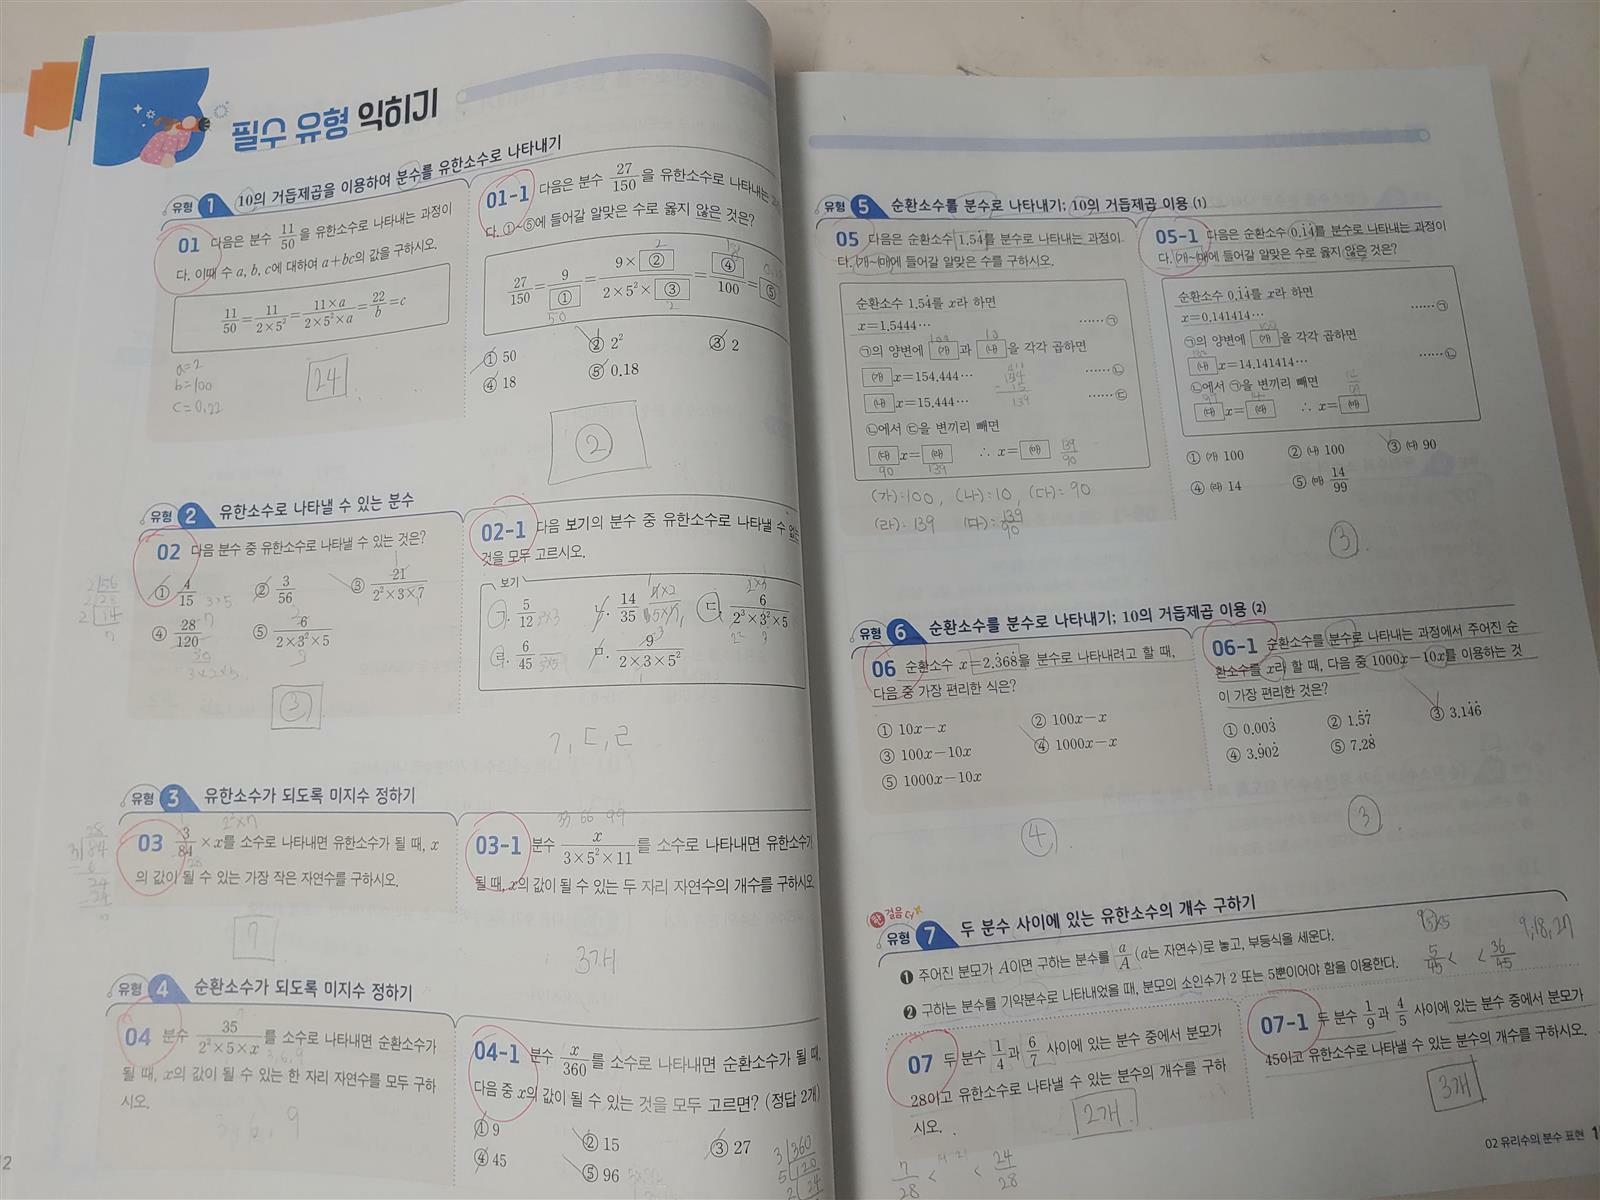 필수 유형 익히기
유형 1 10의 거듭제곱을 이용하여 분수를 유한소수로 나타내기
01 다음은 분수 11/50을 유한소수로 나타내는 과정이
다. 이때 수 a, b, c에 대하여 a+bc의 값을 구하시오.
11/50 = 11/(2×5²) = (11×a)/(2×5²×a) = 22/b = c
a=2
b=100
c=0.22
24
01-1 다음은 분수 27/150을 유한소수로 나타내는
다. ①~⑤에 들어갈 알맞은 수로 옳지 않은 것은?
27/150 = 9/① = (9×②)/(2×5²×③) = ④/100 = ⑤
50
2
2
① 50 ② 2² ③ 2
④ 18 ⑤ 0.18
②
유형 2 유한소수로 나타낼 수 있는 분수
02 다음 분수 중 유한소수로 나타낼 수 있는 것은?
① 4/15 ② 3/56 ③ 21/(2²×3×7)
④ 28/120 ⑤ 6/(2×3²×5)
③
02-1 다음 보기의 분수 중 유한소수로 나타낼 수 없는
것을 모두 고르시오.
보기
ㄱ. 5/12 ㄴ. 14/35 ㄷ. 6/(2³×3²×5)
ㄹ. 6/45 ㅁ. 9/(2×3×5²)
ㄱ, ㄷ, ㄹ
유형 3 유한소수가 되도록 미지수 정하기
03 3/84 ×x를 소수로 나타내면 유한소수가 될 때, x
의 값이 될 수 있는 가장 작은 자연수를 구하시오.
7
33 66 99
03-1 분수 x/(3×5²×11)를 소수로 나타내면 유한소수가
될 때, x의 값이 될 수 있는 두 자리 자연수의 개수를 구하시오
3개
유형 4 순환소수가 되도록 미지수 정하기
04 분수 35/(2²×5×x)를 소수로 나타내면 순환소수가
될 때, x의 값이 될 수 있는 한 자리 자연수를 모두 구하
시오.
3, 6, 9
04-1 분수 x/360를 소수로 나타내면 순환소수가 될 때,
다음 중 x의 값이 될 수 있는 것을 모두 고르면? (정답 2개)
① 9 ② 15 ③ 27
④ 45 ⑤ 96
3 360
5 120
2 24
유형 5 순환소수를 분수로 나타내기; 10의 거듭제곱 이용 (1)
05 다음은 순환소수 1.54̇를 분수로 나타내는 과정이
다. ㈎~㈒에 들어갈 알맞은 수를 구하시오.
순환소수 1.54̇를 x라 하면
x=1.5444⋯ ⋯⋯㉠
㉠의 양변에 ㈎과 ㈏을 각각 곱하면
㈎x=154.444⋯ ⋯⋯㉡
㈏x=15.444⋯ ⋯⋯㉢
㉡에서 ㉢을 변끼리 빼면
㈐x=㈑ ∴ x=㈒ 139/90
90 139
(가):100, (나):10, (다)=90
(라): 139 (다)=139/90
05-1 다음은 순환소수 0.1̇4̇를 분수로 나타내는 과정이
다. ㈎~㈒에 들어갈 알맞은 수로 옳지 않은 것은?
순환소수 0.1̇4̇를 x라 하면
x=0.141414⋯ ⋯⋯㉠
㉠의 양변에 ㈎을 각각 곱하면
㈏x=14.141414⋯ ⋯⋯㉡
㉡에서 ㉠을 변끼리 빼면
㈐x=㈑ ∴ x=㈒
① ㈎ 100 ② ㈏ 100 ③ ㈐ 90
④ ㈑ 14 ⑤ ㈒ 14/99
③
유형 6 순환소수를 분수로 나타내기; 10의 거듭제곱 이용 (2)
06 순환소수 x=2.3̇68̇을 분수로 나타내려고 할 때,
다음 중 가장 편리한 식은?
① 10x−x ② 100x−x
③ 100x−10x ④ 1000x−x
⑤ 1000x−10x
④
06-1 순환소수를 분수로 나타내는 과정에서 주어진 순
환소수를 x라 할 때, 다음 중 1000x−10x를 이용하는 것
이 가장 편리한 것은?
① 0.003̇ ② 1.5̇7̇ ③ 3.14̇6̇
④ 3.9̇02̇ ⑤ 7.28̇
③
한 걸음 더
유형 7 두 분수 사이에 있는 유한소수의 개수 구하기
❶ 주어진 분모가 A이면 구하는 분수를 a/A (a는 자연수)로 놓고, 부등식을 세운다.
❷ 구하는 분수를 기약분수로 나타내었을 때, 분모의 소인수가 2 또는 5뿐이어야 함을 이용한다.
5/45 < < 36/45
9, 18, 27
07 두 분수 1/4과 6/7 사이에 있는 분수 중에서 분모가
28이고 유한소수로 나타낼 수 있는 분수의 개수를 구하
시오.
2개
7/28 < < 24/28
07-1 두 분수 1/9과 4/5 사이에 있는 분수 중에서 분모가
45이고 유한소수로 나타낼 수 있는 분수의 개수를 구하시오.
3개
02 유리수의 분수 표현